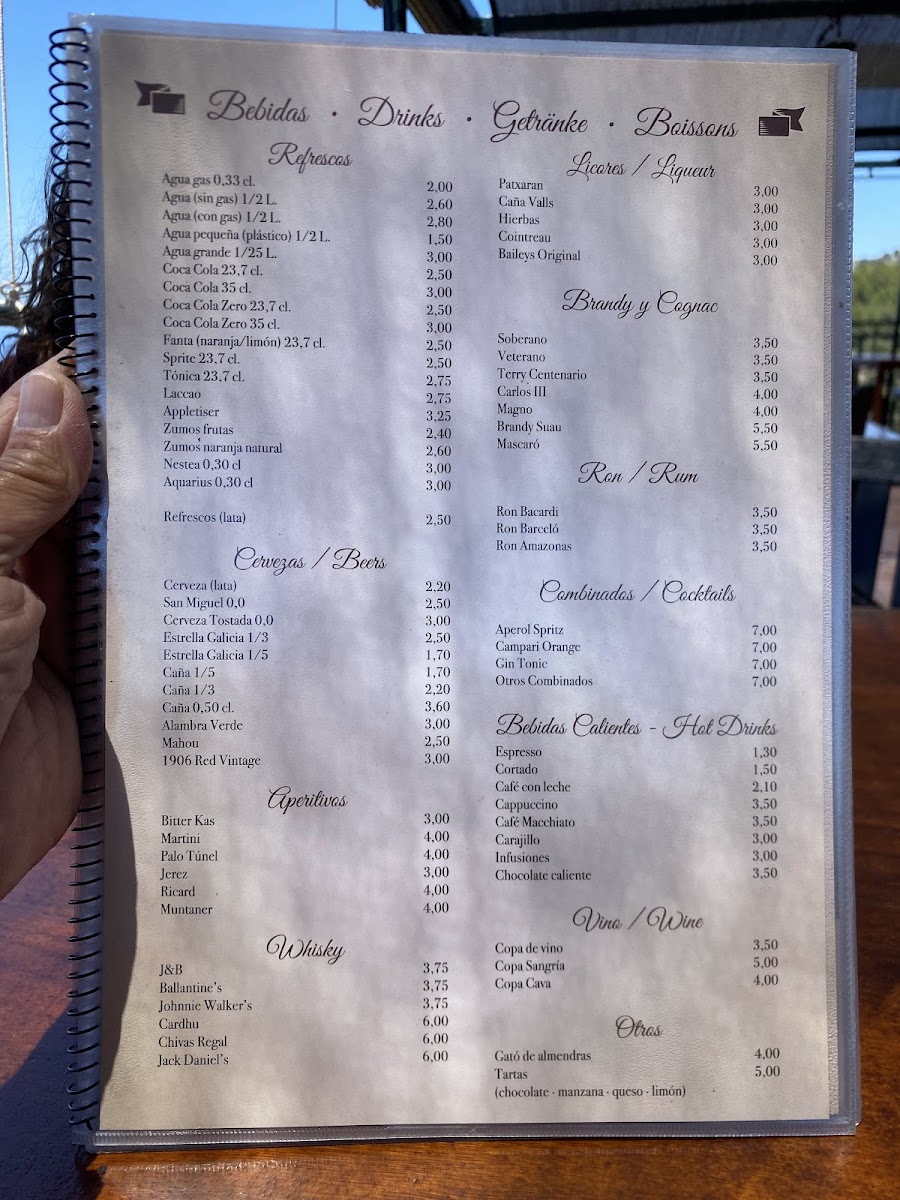 Bebidas · Drinks · Getränke · Boissons
Refrescos
Agua gas 0,33 cl. 2,00
Agua (sin gas) 1/2 L. 2,60
Agua (con gas) 1/2 L. 2,80
Agua pequeña (plástico) 1/2 L. 1,50
Agua grande 1/25 L. 3,00
Coca Cola 23,7 cl. 2,50
Coca Cola 35 cl. 3,00
Coca Cola Zero 23,7 cl. 2,50
Coca Cola Zero 35 cl. 3,00
Fanta (naranja/limón) 23,7 cl. 2,50
Sprite 23,7 cl. 2,50
Tónica 23,7 cl. 2,75
Laccao 2,75
Appletiser 3,25
Zumos frutas 2,40
Zumos naranja natural 2,60
Nestea 0,30 cl 3,00
Aquarius 0,30 cl 3,00
Refrescos (lata) 2,50
Cervezas / Beers
Cerveza (lata) 2,20
San Miguel 0,0 2,50
Cerveza Tostada 0,0 3,00
Estrella Galicia 1/3 2,50
Estrella Galicia 1/5 1,70
Caña 1/5 1,70
Caña 1/3 2,20
Caña 0,50 cl. 3,60
Alambra Verde 3,00
Mahou 2,50
1906 Red Vintage 3,00
Aperitivos
Bitter Kas 3,00
Martini 4,00
Palo Túnel 4,00
Jerez 3,00
Ricard 4,00
Muntaner 4,00
Whisky
J&B 3,75
Ballantine's 3,75
Johnnie Walker's 3,75
Cardhu 6,00
Chivas Regal 6,00
Jack Daniel's 6,00
Licores / Liqueur
Patxaran 3,00
Caña Valls 3,00
Hierbas 3,00
Cointreau 3,00
Baileys Original 3,00
Brandy y Cognac
Soberano 3,50
Veterano 3,50
Terry Centenario 3,50
Carlos III 4,00
Magno 4,00
Brandy Suau 5,50
Mascaró 5,50
Ron / Rum
Ron Bacardi 3,50
Ron Barceló 3,50
Ron Amazonas 3,50
Combinados / Cocktails
Aperol Spritz 7,00
Campari Orange 7,00
Gin Tonic 7,00
Otros Combinados 7,00
Bebidas Calientes - Hot Drinks
Espresso 1,30
Cortado 1,50
Café con leche 2,10
Cappuccino 3,50
Café Macchiato 3,50
Carajillo 3,00
Infusiones 3,00
Chocolate caliente 3,50
Vino / Wine
Copa de vino 3,50
Copa Sangría 5,00
Copa Cava 4,00
Otros
Gató de almendras 4,00
Tartas 5,00
(chocolate · manzana · queso · limón)